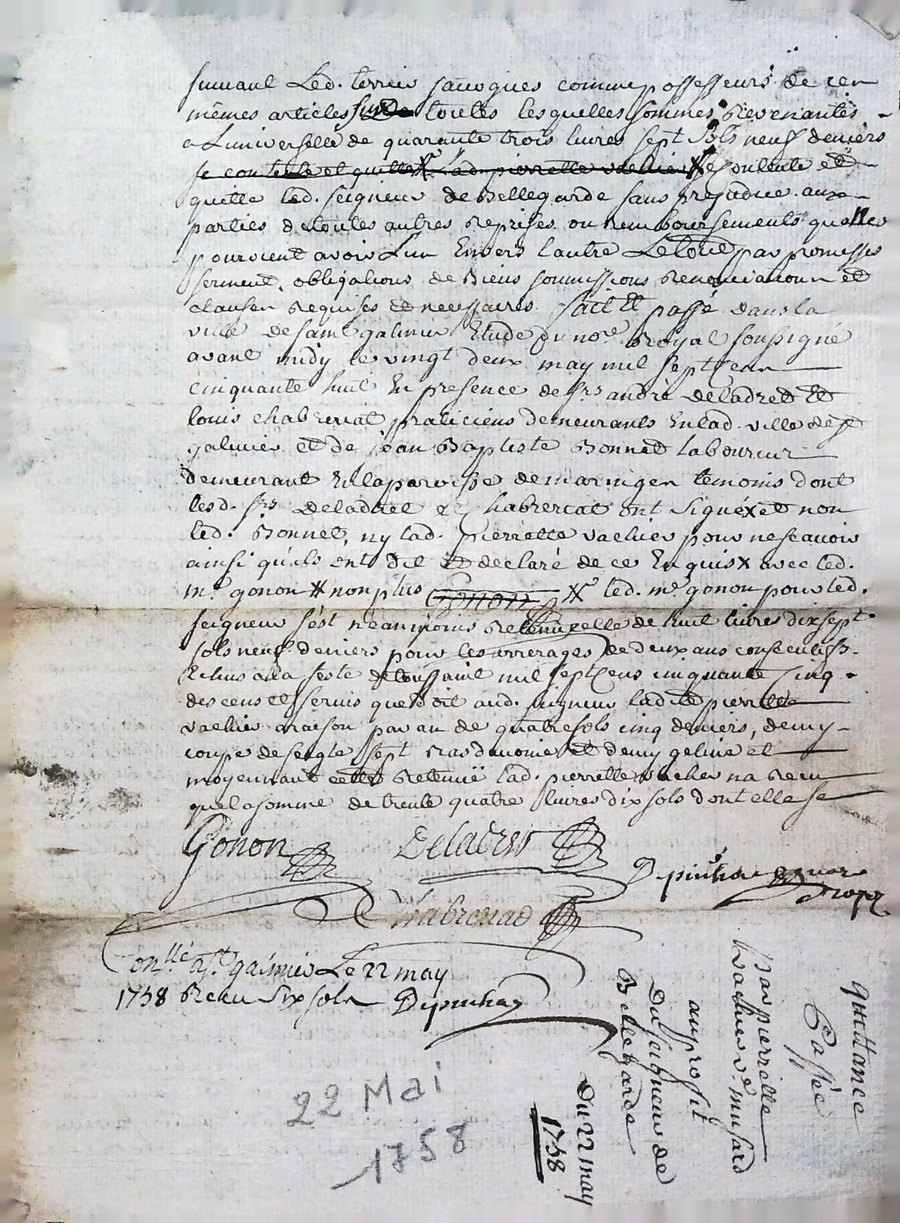 suivant led. terrier jacoques comme possesseurs de ces
mêmes articles toutes lesquelles sommes revenantes
a L'universelle de quarante trois livres sept sols neuf deniers
se contente et quitte Lad. pierrette vachier contente et
quitte led. seigneur de Bellegarde sans prejudice aux
parties de toutes autres reprises ou remboursements quelles
pourroient avoir L'un Envers L'autre Le tout par promesses
serment, obligations de Biens soumissions Renonciations et
clauses Requises et necessaires fait Et passé dans la
ville de saint galmier Etude du nore Royal soussigné
avant midy le vingt deux may mil sept cen
cinquante huit En presence de srs andré deladret Et
louis chabrerat praticiens demeurants En lad. ville de st
galmier et de jean Baptiste Bonnet laboureur
demeurant En la paroisse de maringes temoins dont
lesd. srs Deladret et Chabrerat ont signéx et non
led. Bonnet ny lad. pierrette vachier pour ne scavoir
ainsi qu'ils ont dit declaré de ce Enquis avec led.
me gonon non plus led. me gonon pour led.
seigneur s'est neanmoins Retenu celle de huit livres dix sept
sols neuf deniers pour les arrerages de deux ans consecutifs
Echus a la feste de toussaint mil sept cens cinquante Cinq
des cens et servis que doit aud. seigneur ladite pierrette
vachier a raison par an de quatre sols cinq deniers, demy
coupe de seigle sept ras d'avoine et demy geline et
moyennant cette Retenuë lad. pierrette vachier na Recu
que la somme de trente quatre livres dix sols dont elle se
Gonon Deladret
Depinhac
Chabrerat
Conllé a St galmier Le 22 may
1758 Recu six sols Depinhac
quittance
Passée
par pierrette
vachier ve musard
au profit
Du seigneur de
Bellegarde
Du 22 may
1758
22 Mai
1758